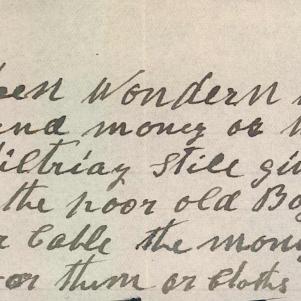 been Wondern
and money or
still
the poor old Bo
Cable the mony
for them or Cloths